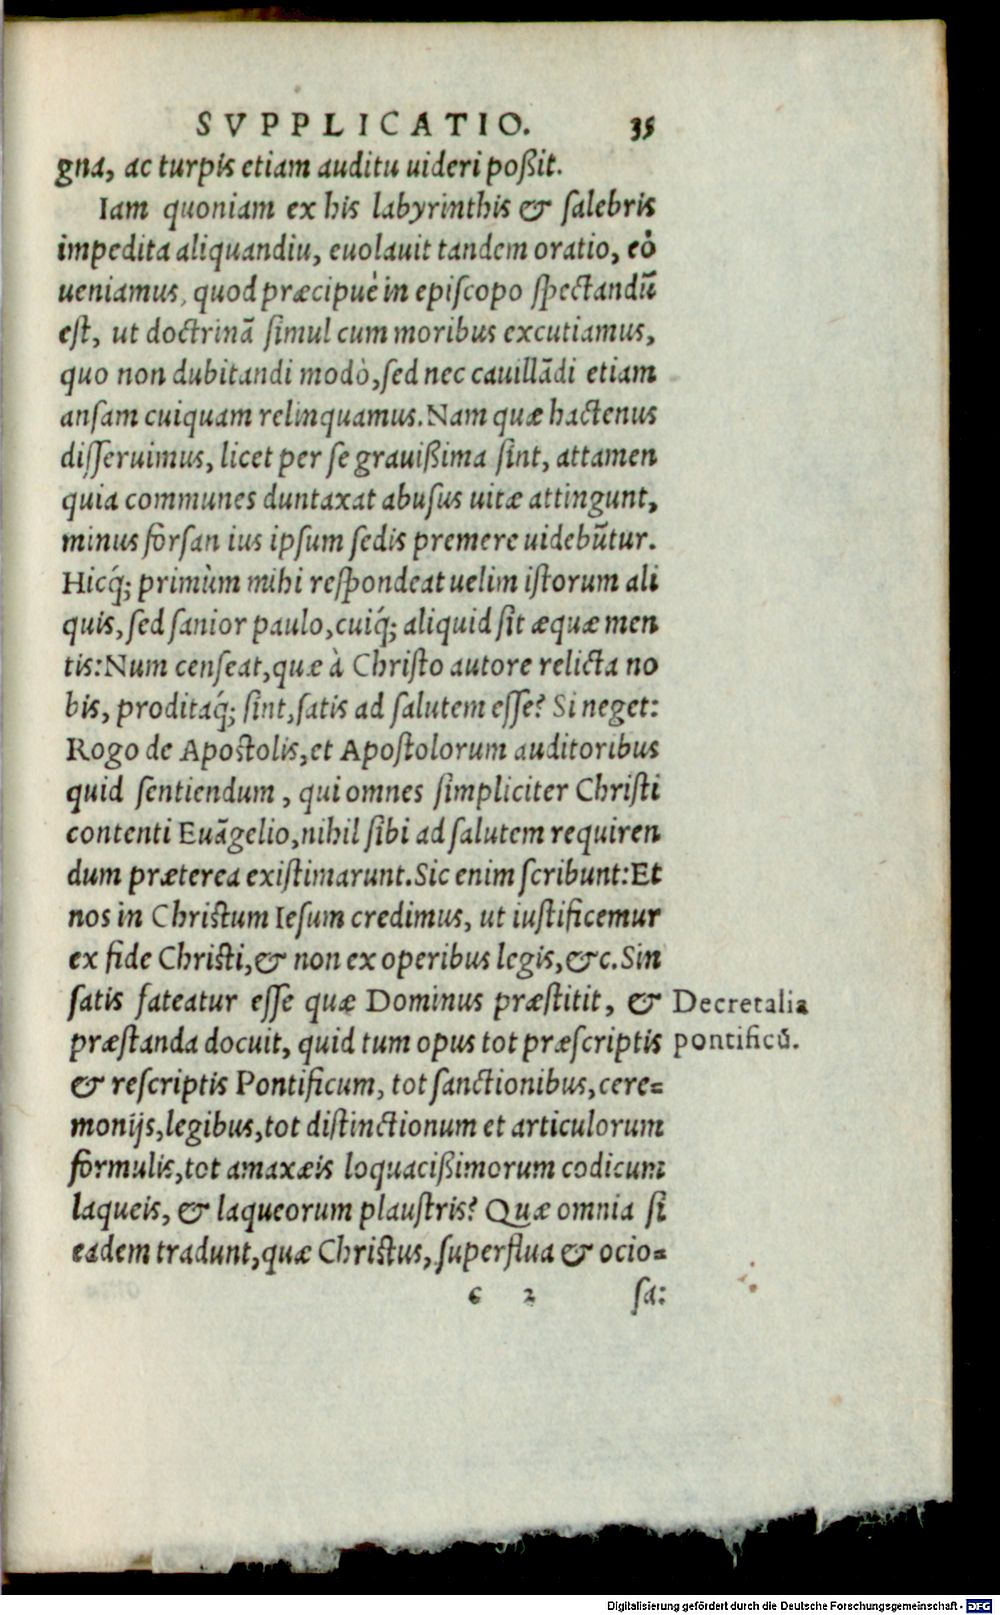 SVPPLICATIO. 35
gna, ac turpis etiam auditu uideri poßit.
Iam quoniam ex his labyrinthis & salebris
impedita aliquandiu, euolauit tandem oratio, eò
ueniamus, quod præcipuè in episcopo spectandũ
est, ut doctrinã simul cum moribus excutiamus,
quo non dubitandi modò, sed nec cauillãdi etiam
ansam cuiquam relinquamus. Nam quæ hactenus
disseruimus, licet per se grauißima sint, attamen
quia communes duntaxat abusus uitæ attingunt,
minus forsan ius ipsum sedis premere uidebũtur.
Hicq́; primùm mihi respondeat uelim istorum ali
quis, sed sanior paulo, cuiq́; aliquid sit æquæ men
tis: Num censeat, quæ à Christo autore relicta no
bis, proditaq́; sint, satis ad salutem esse? Si neget:
Rogo de Apostolis, et Apostolorum auditoribus
quid sentiendum, qui omnes simpliciter Christi
contenti Euãgelio, nihil sibi ad salutem requiren
dum præterea existimarunt. Sic enim scribunt: Et
nos in Christum Iesum credimus, ut iustificemur
ex fide Christi, & non ex operibus legis, &c. Sin
satis fateatur esse quæ Dominus præstitit, & Decretalia
præstanda docuit, quid tum opus tot præscriptis pontificũ.
& rescriptis Pontificum, tot sanctionibus, cere=
monijs, legibus, tot distinctionum et articulorum
formulis, tot amaxæis loquacißimorum codicum
laqueis, & laqueorum plaustris? Quæ omnia si
eadem tradunt, quæ Christus, superflua & ocio=
e 2 sa:
Digitalisierung gefördert durch die Deutsche Forschungsgemeinschaft - DFG